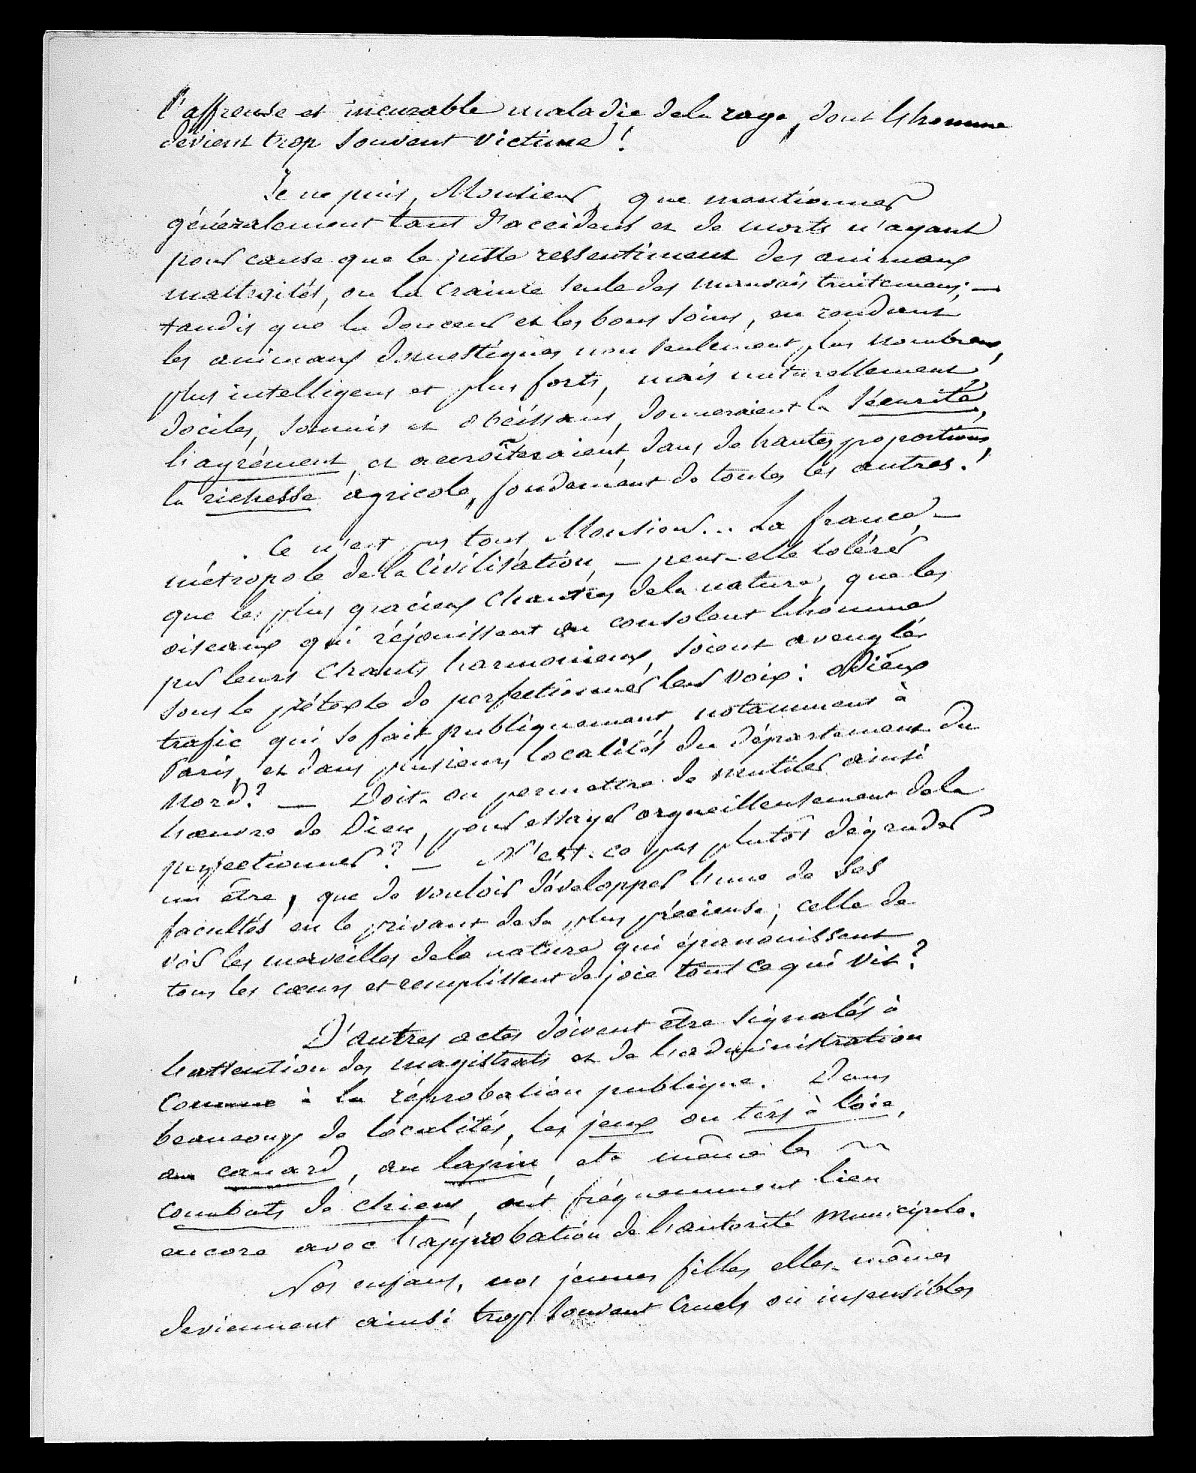 l'affreuse et incurable maladie de la rage, dont l'homme
devient trop souvent victime !
Je ne puis, Monsieur, que mentionner
généralement tant d'accidens et de morts n'ayant
pour cause que le juste ressentiment des animaux
maltraités, ou la crainte seule des mauvais traitemens; —
tandis que la douceur et les bons soins, en rendant
les animaux domestiques non seulement plus nombreux,
plus intelligens et plus forts, mais naturellement
dociles, soumis et obéissans, donneraient la sécurité,
l'agrément, et accroîteraient, dans de hautes proportions,
la richesse agricole, fondement de toutes les autres.
Ce n'est pas tout, Monsieur... La france, —
métropole de la Civilisation, — peut-elle tolérer
que les plus gracieux Chantres de la nature, que les
oiseaux qui réjouissent ou consolent l'homme
par leurs Chants harmonieux, soient aveuglés
sous le prétexte de perfectionner leur voix : odieux
trafic qui se fait publiquement, notamment à
Paris, et dans plusieurs localités du département du
Nord ? — Doit-on permettre de mutiler ainsi
l'œuvre de Dieu, pour essayer orgueilleusement de la
perfectionner ? — N'est-ce pas plutôt dégrader
un être, que de vouloir développer l'une de ses
facultés en le privant de sa plus précieuse; celle de
voir les merveilles de la nature qui épanouissent
tous les cœurs et remplissent de joie tout ce qui vit ?
D'autres actes doivent être signalés à
l'attention des magistrats et de l'administration
comme à la réprobation publique. Dans
beaucoup de localités, les jeux ou tirs à l'oie,
au canard, au lapin, et même les
combats de chiens, ont fréquemment lieu
encore avec l'approbation de l'autorité municipale.
Nos enfans, nos jeunes filles elles-mêmes
deviennent ainsi trop souvent cruels ou insensibles